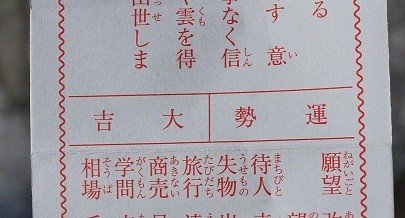 る
す意
事なく信
や雲を得
出世しま
運勢 大吉
願望
待人
失物
旅行
商売
学問
相場